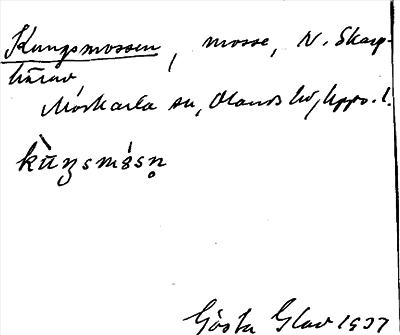 Kungsmossen, mosse, N. Skarp-
härav
Morkarla sn, Olands hd, Upps. l.
kùŋsmósn̥
Gösta Glav 1937